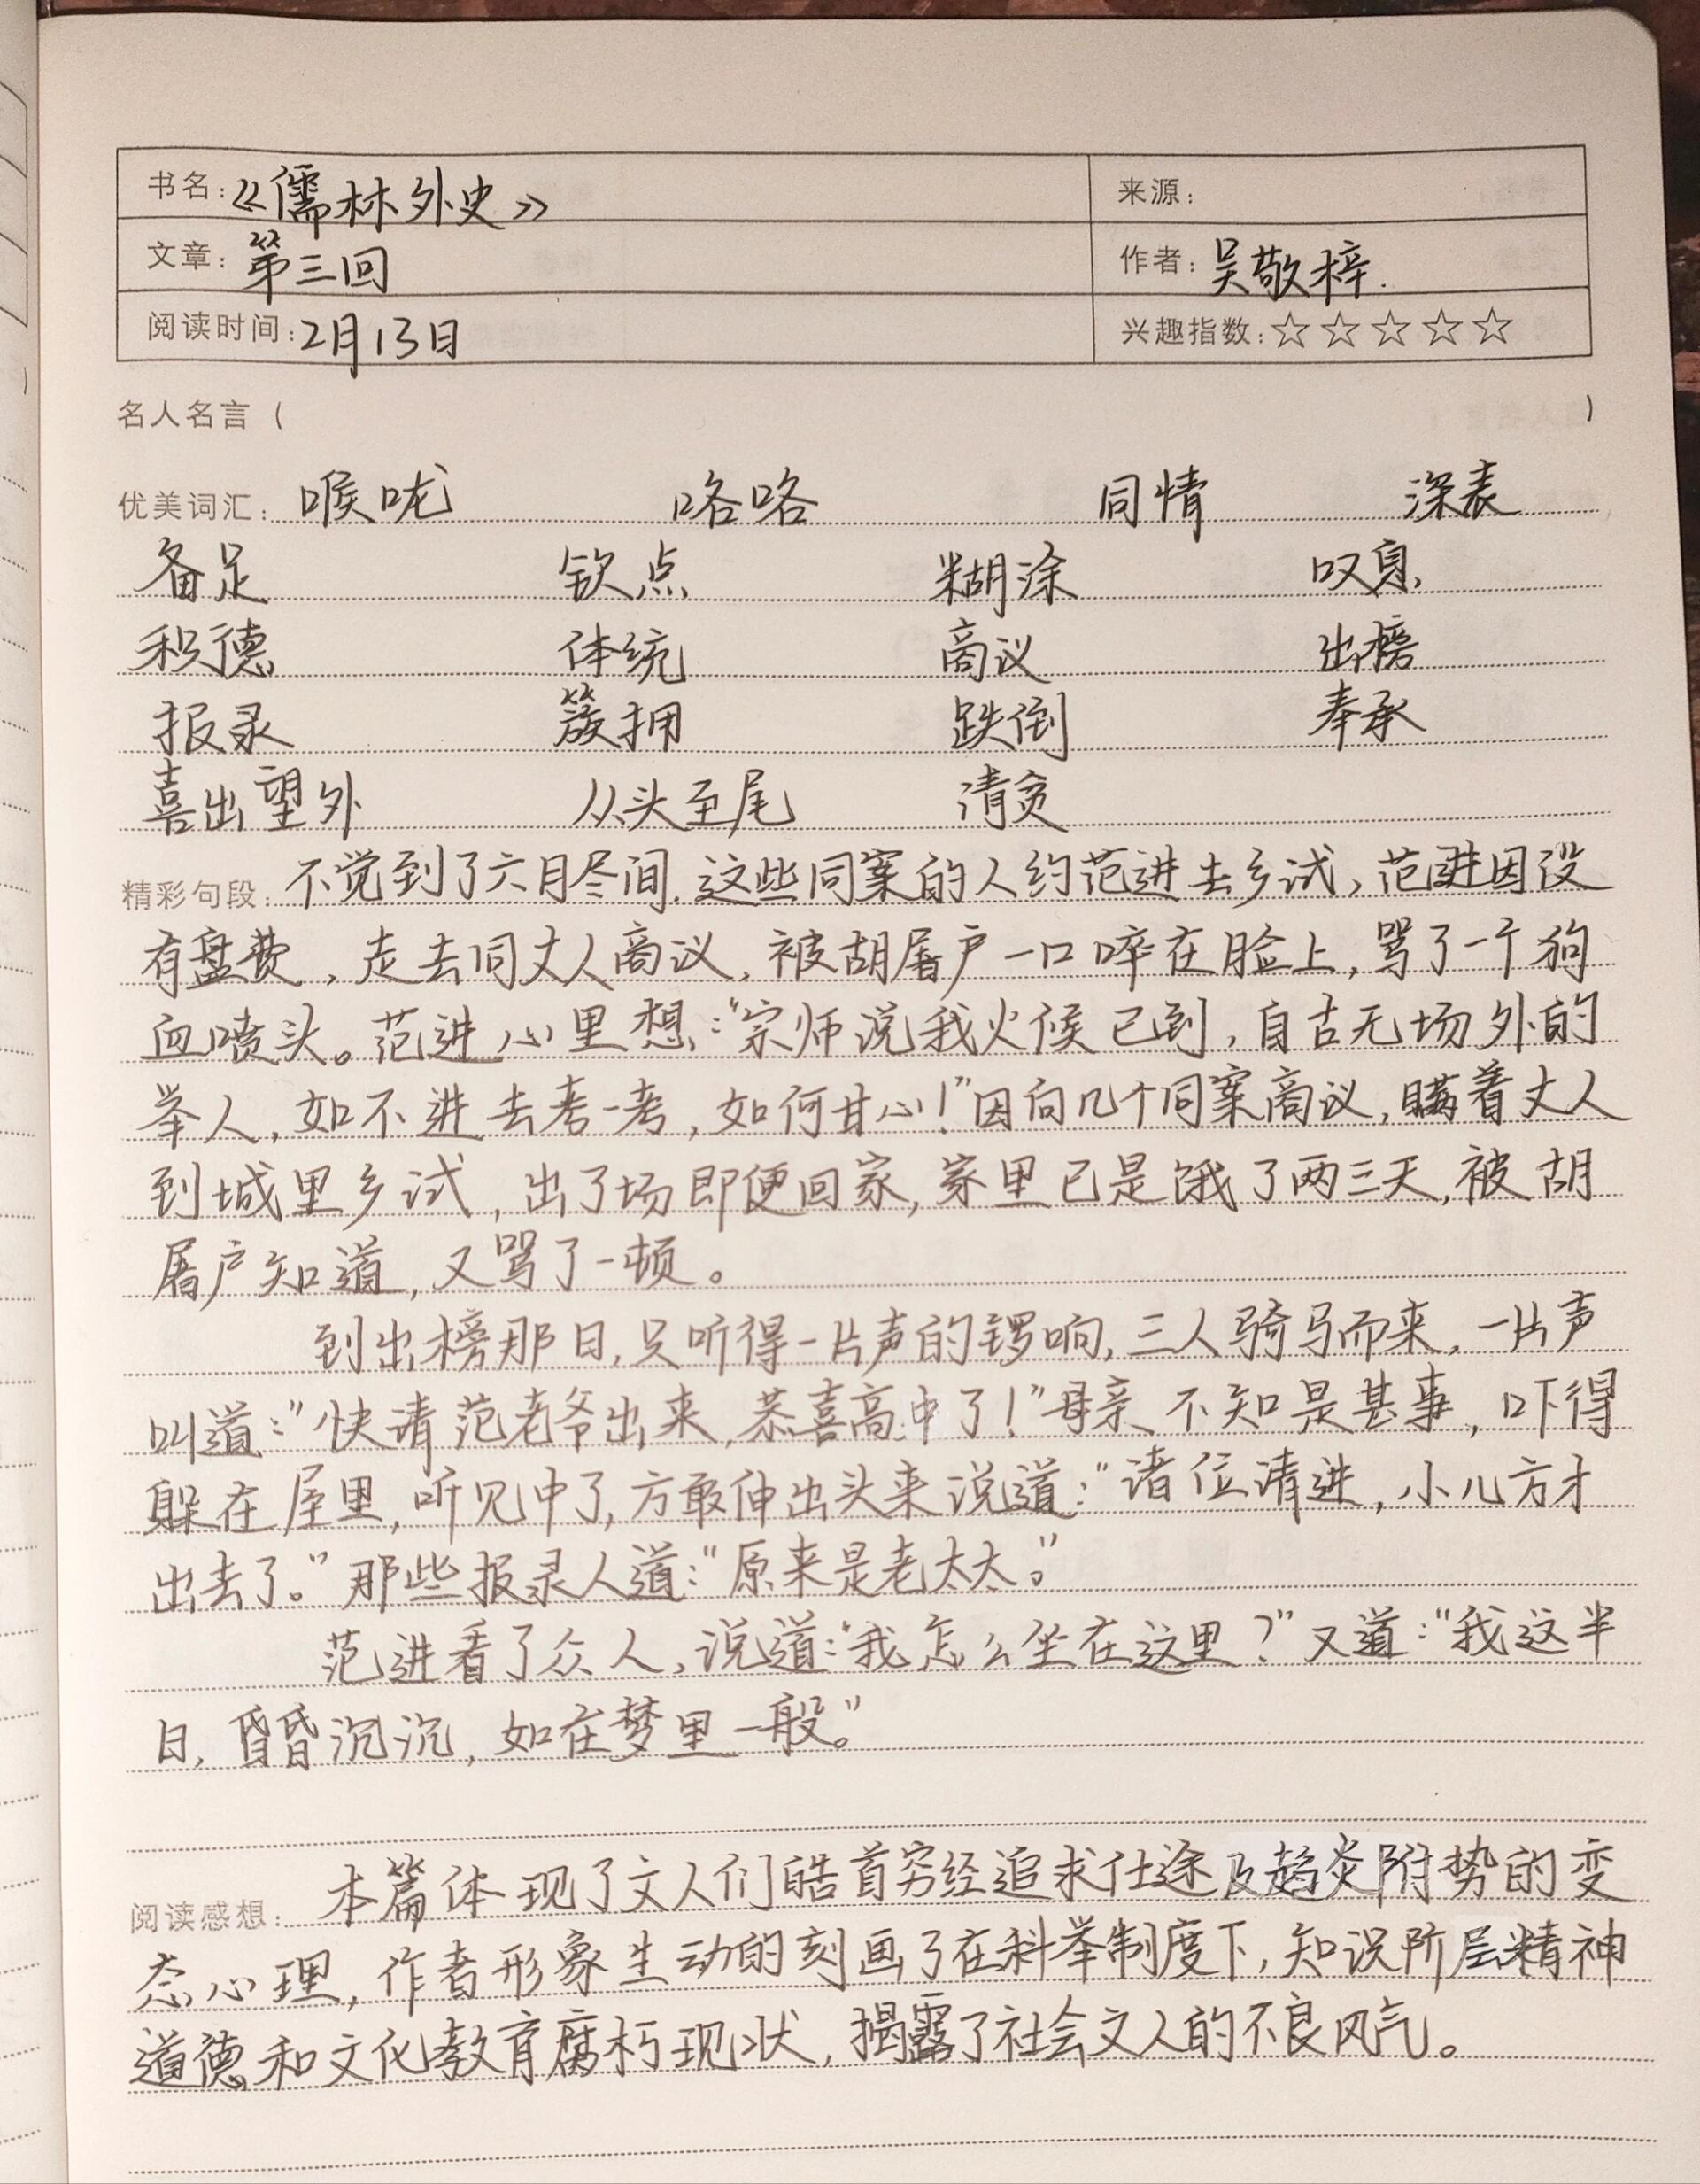 书名:《儒林外史》 来源:
文章:第三回 作者:吴敬梓.
阅读时间:2月13日 兴趣指数:☆☆☆☆☆
名人名言 ( )
优美词汇: 喉咙 咯咯 同情 深表
备足 钦点 糊涂 叹息
积德 体统 商议 出榜
报录 簇拥 跌倒 奉承
喜出望外 从头至尾 清贫
精彩句段: 不觉到了六月尽间.这些同案的人约范进去乡试,范进因没
有盘费,走去同丈人商议,被胡屠户一口啐在脸上,骂了一个狗
血喷头。范进心里想:“宗师说我火候已到,自古无场外的
举人,如不进去考一考,如何甘心!”因向几个同案商议,瞒着丈人
到城里乡试,出了场即便回家,家里已是饿了两三天,被胡
屠户知道,又骂了一顿。
到出榜那日,只听得一片声的锣响,三人骑马而来,一片声
叫道:“快请范老爷出来,恭喜高中了!”母亲不知是甚事,吓得
躲在屋里,听见中了,方敢伸出头来说道:“诸位请进,小儿方才
出去了。”那些报录人道:“原来是老太太。”
范进看了众人,说道:“我怎么坐在这里?”又道:“我这半
日,昏昏沉沉,如在梦里一般。”
阅读感想: 本篇体现了文人们皓首穷经追求仕途及趋炎附势的变
态心理,作者形象生动的刻画了在科举制度下,知识阶层精神
道德和文化教育腐朽现状,揭露了社会文人的不良风气。